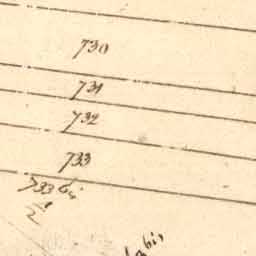 730
731
732
733
733 bis
1/2
bis